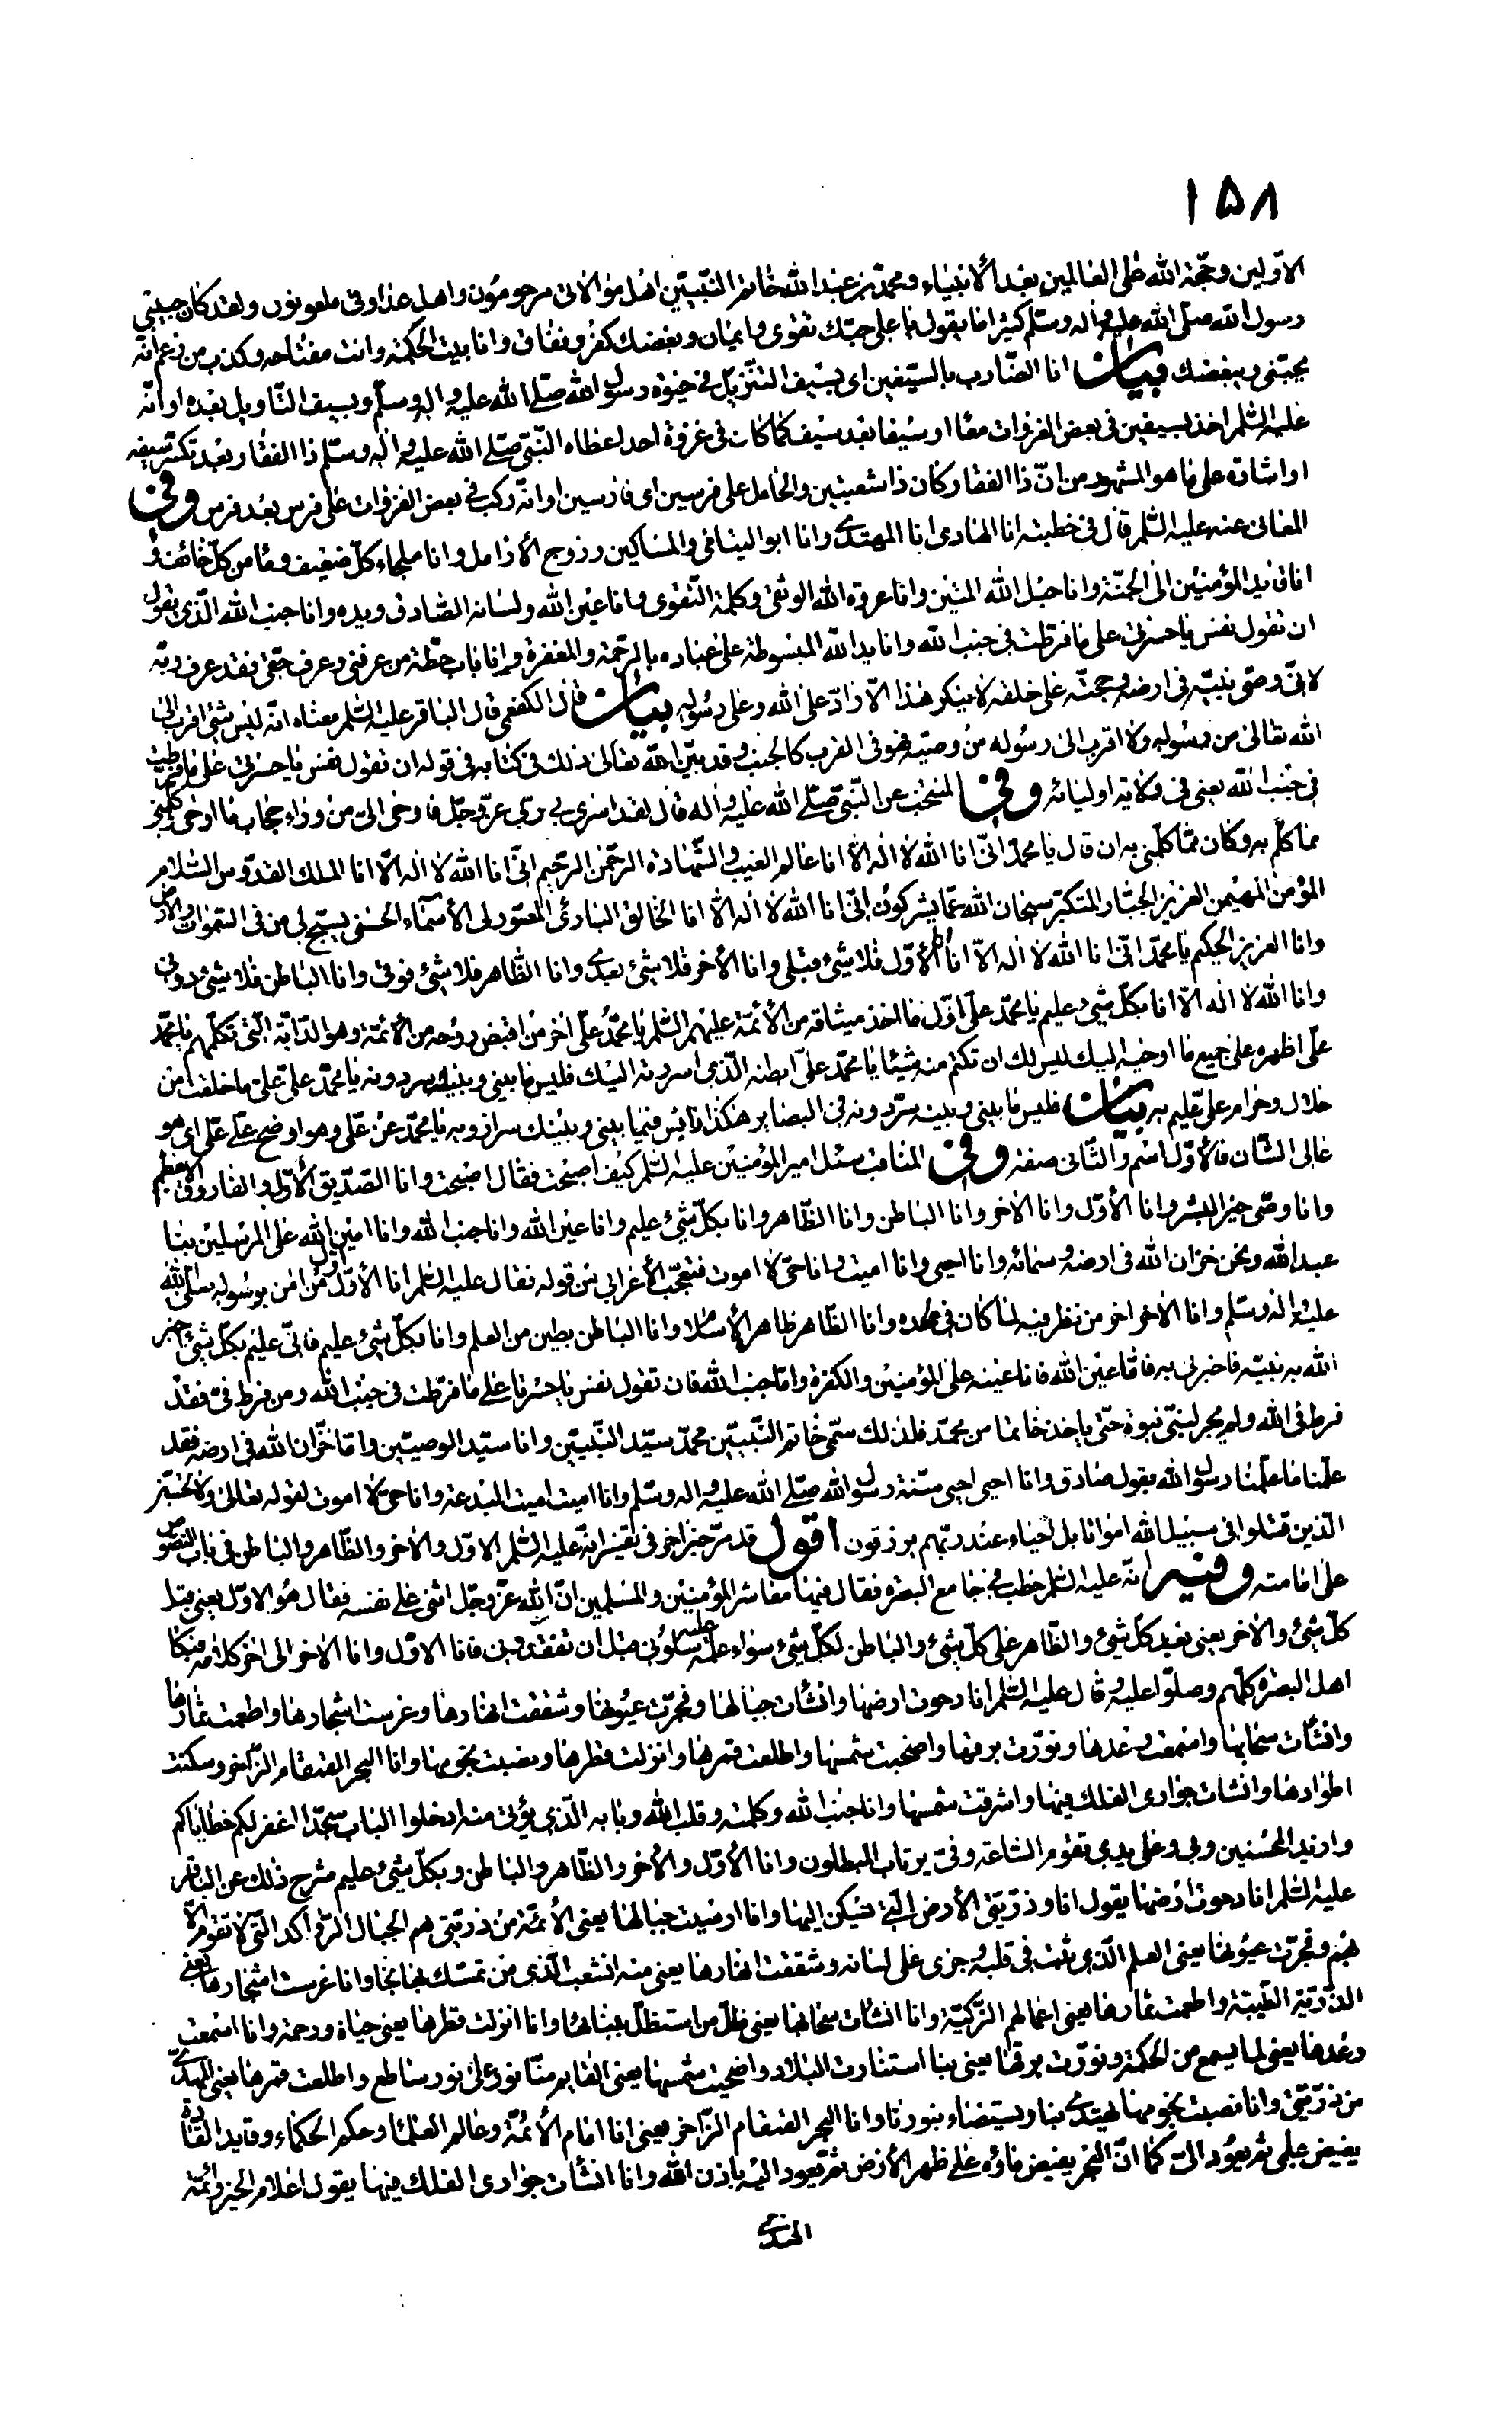 ١٥٨
الاوّلين وحجّة الله على العالمين بعد الأنبياء ومحمّد بن عبد الله خاتم النّبيّين اهل موالاتى مرحومون واهل عداوتى ملعونون ولقد كان حبيبى
رسول الله صلّى الله عليه واله وسلّم كثيرا ما يقول يا على حبّك تقوى وايمان وبغضك كفر ونفاق وانا بيت الحكمة وانت مفتاحه وكذب من زعم انّه
يحبّنى ويبغضك بيان انا الضّارب بالسّيفين اى بسيف التنزيل فى حيوة رسول الله صلّى الله عليه واله وسلّم وبسيف التّاويل بعده او انّه
عليه السّلم اخذ بسيفين فى بعض الغزوات معا او سيفا بعد سيف كما كان فى غزوة احد اعطاه النّبىّ صلّى الله عليه واله وسلّم ذا الفقار بعد تكسّر سيفه
او اشارة على ما هو المشهور من انّ ذا الفقار كان ذا شعبتين والحامل على فرسين اى فارسين او انّه ركب فى بعض الغزوات على فرس بعد فرس وفى
المعانى عنه عليه السّلم قال فى خطبته انا الهادى انا المهتدى وانا ابو اليتامى والمساكين وزوج الأرامل وانا ملجاء كلّ ضعيف ومامن كلّ خائف و
انا قائد المؤمنين الى الجنّة وانا حبل الله المتين وانا عروة الله الوثقى وكلمة التّقوى وانا عين الله ولسانه الصّادق ويده وانا جنب الله الّذى يقول
ان تقول نفس يا حسرتى على ما فرّطت فى جنب الله وانا يد الله المبسوطة على عباده بالرّحمة والمغفرة وانا باب حطّة من عرفنى وعرف حقّى فقد عرف ربّه
لانّى وصىّ نبيّه فى ارضه وحجته على خلقه لا ينكر هذا الّا رادّ على الله وعلى رسوله بيان قال الكفعمى قال الباقر عليه السّلم معناه انّه ليس شئ اقرب الى
الله تعالى من رسوله ولا اقرب الى رسوله من وصيّه فهو فى القرب كالجنب وقد بيّن الله تعالى ذلك فى كتابه فى قوله ان تقول نفس يا حسرتى على ما فرّطت
فى جنب الله يعنى فى ولاية اوليائه وفى المنتخب عن النّبىّ صلّى الله عليه واله قال لقد اسرى بى ربّى عزّ وجلّ فاوحى الىّ من وراء حجاب ما اوحى وكلّمنى
ما كلّم به وكان ممّا كلّمنى به ان قال يا محمّد انّى انا الله لا اله الّا انا عالم الغيب والشّهادة الرّحمن الرّحيم انّى انا الله لا اله الّا انا الملك القدّوس السّلام
المؤمن المهيمن العزيز الجبّار المتكبّر سبحان الله عمّا يشركون انّى انا الله لا اله الّا انا الخالق البارئ المصوّر لى الأسماء الحسنى يسبّح لى من فى السّموات والأرض
وانا العزيز الحكيم يا محمّد انّى انا الله لا اله الّا انا الأوّل فلا شئ قبلى وانا الأخر فلا شئ بعدى وانا الظّاهر فلا شئ فوقى وانا الباطن فلا شئ دونى
وانا الله لا اله الّا انا بكلّ شئ عليم يا محمّد علىّ اوّل ما اخذ ميثاقه من الأئمّة عليهم السّلم يا محمّد علىّ اخر من اقبض روحه من الأئمّة وهو الدّابّة الّتى تكلّمهم يا محمّد
علىّ اظهره على جميع ما اوحيه اليك ليس لك ان تكتم منه شيئا يا محمّد علىّ ابطنه الّذى اسررته اليك فليس ما بينى وبينك سر دونه يا محمّد علىّ علىّ ما خلقت من
حلال وحرام علىّ عليم به بيان فليس ما بينى وبينه سرّ دونه فى البصاير هكذا ليس فيما بينى وبينك سر ازويه يا محمّد عن علىّ وهو اوضح علىّ علىّ اى هو
عالى الشّان فالأوّل اسم والثّانى صفة وفى المناقب سئل امير المؤمنين عليه السّلم كيف اصبحت فقال اصبحت وانا الصّدّيق الأوّل والفاروق الاعظم
وانا وصّى خير البشر وانا الأوّل وانا الأخر وانا الباطن وانا الظّاهر وانا بكلّ شئ عليم وانا عين الله وانا جنب الله وانا امين الله على المرسلين بنا
عبد الله ونحن خزان الله فى ارضه وسمائه وانا احيى وانا اميت وانا حىّ لا اموت فتعجّب الأعرابى من قوله فقال عليه السّلم انا الأوّل اول من امن برسوله صلّى الله
عليه واله وسلّم وانا الأخر اخر من نظر فيه لما كان فى لحده وانا الظّاهر ظاهر الأسلام وانا الباطن بطين من العلم وانا بكلّ شئ عليم فانّى عليم بكلّ شئ اخبر
الله به نبيّه فاخبرنى به فامّا عين الله فانا عينه على المؤمنين والكفرة وامّا جنب الله فان تقول نفس يا حسرتا على ما فرّطت فى جنب الله ومن فرط فىّ فقد
فرط فى الله ولم يجز لنبىّ نبوة حتّى ياخذ خاتما من محمّد فلذلك سمّى خاتم النّبيّين محمّد سيّد النّبيّين وانا سيّد الوصيّين وامّا خزّان الله فى ارضه فقد
علمنا ما علمنا رسول الله بقول صادق وانا احيى احيى سنّة رسول الله صلّى الله عليه واله وسلّم وانا اميت اميت البدعة وانا حىّ لا اموت لقوله تعالى ولا تحسبنّ
الّذين قتلوا فى سبيل الله امواتا بل احياء عند ربّهم يرزقون اقول قد مرّ خبر اخر فى تفسير انّه عليه السّلم الاوّل والأخر والظّاهر والباطن فى باب النصوص
على امامته وفيه انّه عليه السّلم خطب فى جامع البصرة فقال فيها معاشر المؤمنين والمسلمين انّ الله عزّ وجلّ اثنى على نفسه فقال هو الاوّل يعنى قبل
كلّ شئ والأخر يعنى بعد كلّ شئ والظّاهر على كلّ شئ والباطن لكلّ شئ سواء علمه عليه سلونى قبل ان تفقدونى فانا الاوّل وانا الأخر الى اخر كلامه فبكا
اهل البصرة كلّهم وصلّوا عليه وقال عليه السّلم انا دحوت ارضها وانشات جبالها وفجّرت عيونها وشققت انهارها وغرست اشجارها واطعمت ثمارها
وانشأت سحابها واسمعت رعدها ونوّرت برقها واضحيت شمسها واطلعت قمرها وانزلت قطرها ونصبت نجومها وانا البحر القمقام الزّاخر وسكنت
اطوادها وانشات جوارى الفلك فيها واشرقت شمسها وانا جنب الله وكلمته وقلب الله وبابه الّذى يؤتى منه ادخلوا الباب سجّدا اغفر لكم خطاياكم
وازيد المحسنين وبى وعلى يدى تقوم السّاعة وفىّ يرتاب المبطلون وانا الأوّل والأخر والظّاهر والباطن وبكلّ شئ عليم شرح ذلك عن الباقر
عليه السّلم انا دحوت ارضها يقول انا وذرّيّتى الأرض الّتى يسكن اليها وانا ارسيت جبالها يعنى الأئمّة من ذرّيّتى هم الجبال الرّواكد الّتى لا تقوم الّا
بهم وفجّرت عيونها يعنى العلم الّذى ثبت فى قلبه وجرى على لسانه وشققت انهارها يعنى منه انشعب الّذى من تمسّك بها نجا وانا غرست اشجارها يعنى
الذّرّيّة الطّيّبة واطعمت ثمارها يعنى اعمالهم الزّكيّة وانا انشأت سحابها يعنى ظلّ من استظلّ ببنائها وانا انزلت قطرها يعنى حياة ورحمة وانا اسمعت
رعدها يعنى لما يسمع من الحكمة ونوّرت برقها يعنى بنا استنارت البلاد واضحيت شمسها يعنى القايم منّا نور على نور ساطع واطلعت قمرها يعنى المهدىّ
من ذرّيّتى وانا نصبت نجومها يهتدى بنا ويستضاء بنورنا وانا البحر القمقام الزّاخر يعنى انا امام الأئمّة وعالم العلماء وحكم الحكماء وقايد القادة
يفيض علمى ثم يعود الىّ كما انّ البحر يفيض ماؤه على ظهر الأرض ثم يعود اليه باذن الله وانا انشأت جوارى الفلك فيها يقول اعلام الخير وائمّة
الهدى